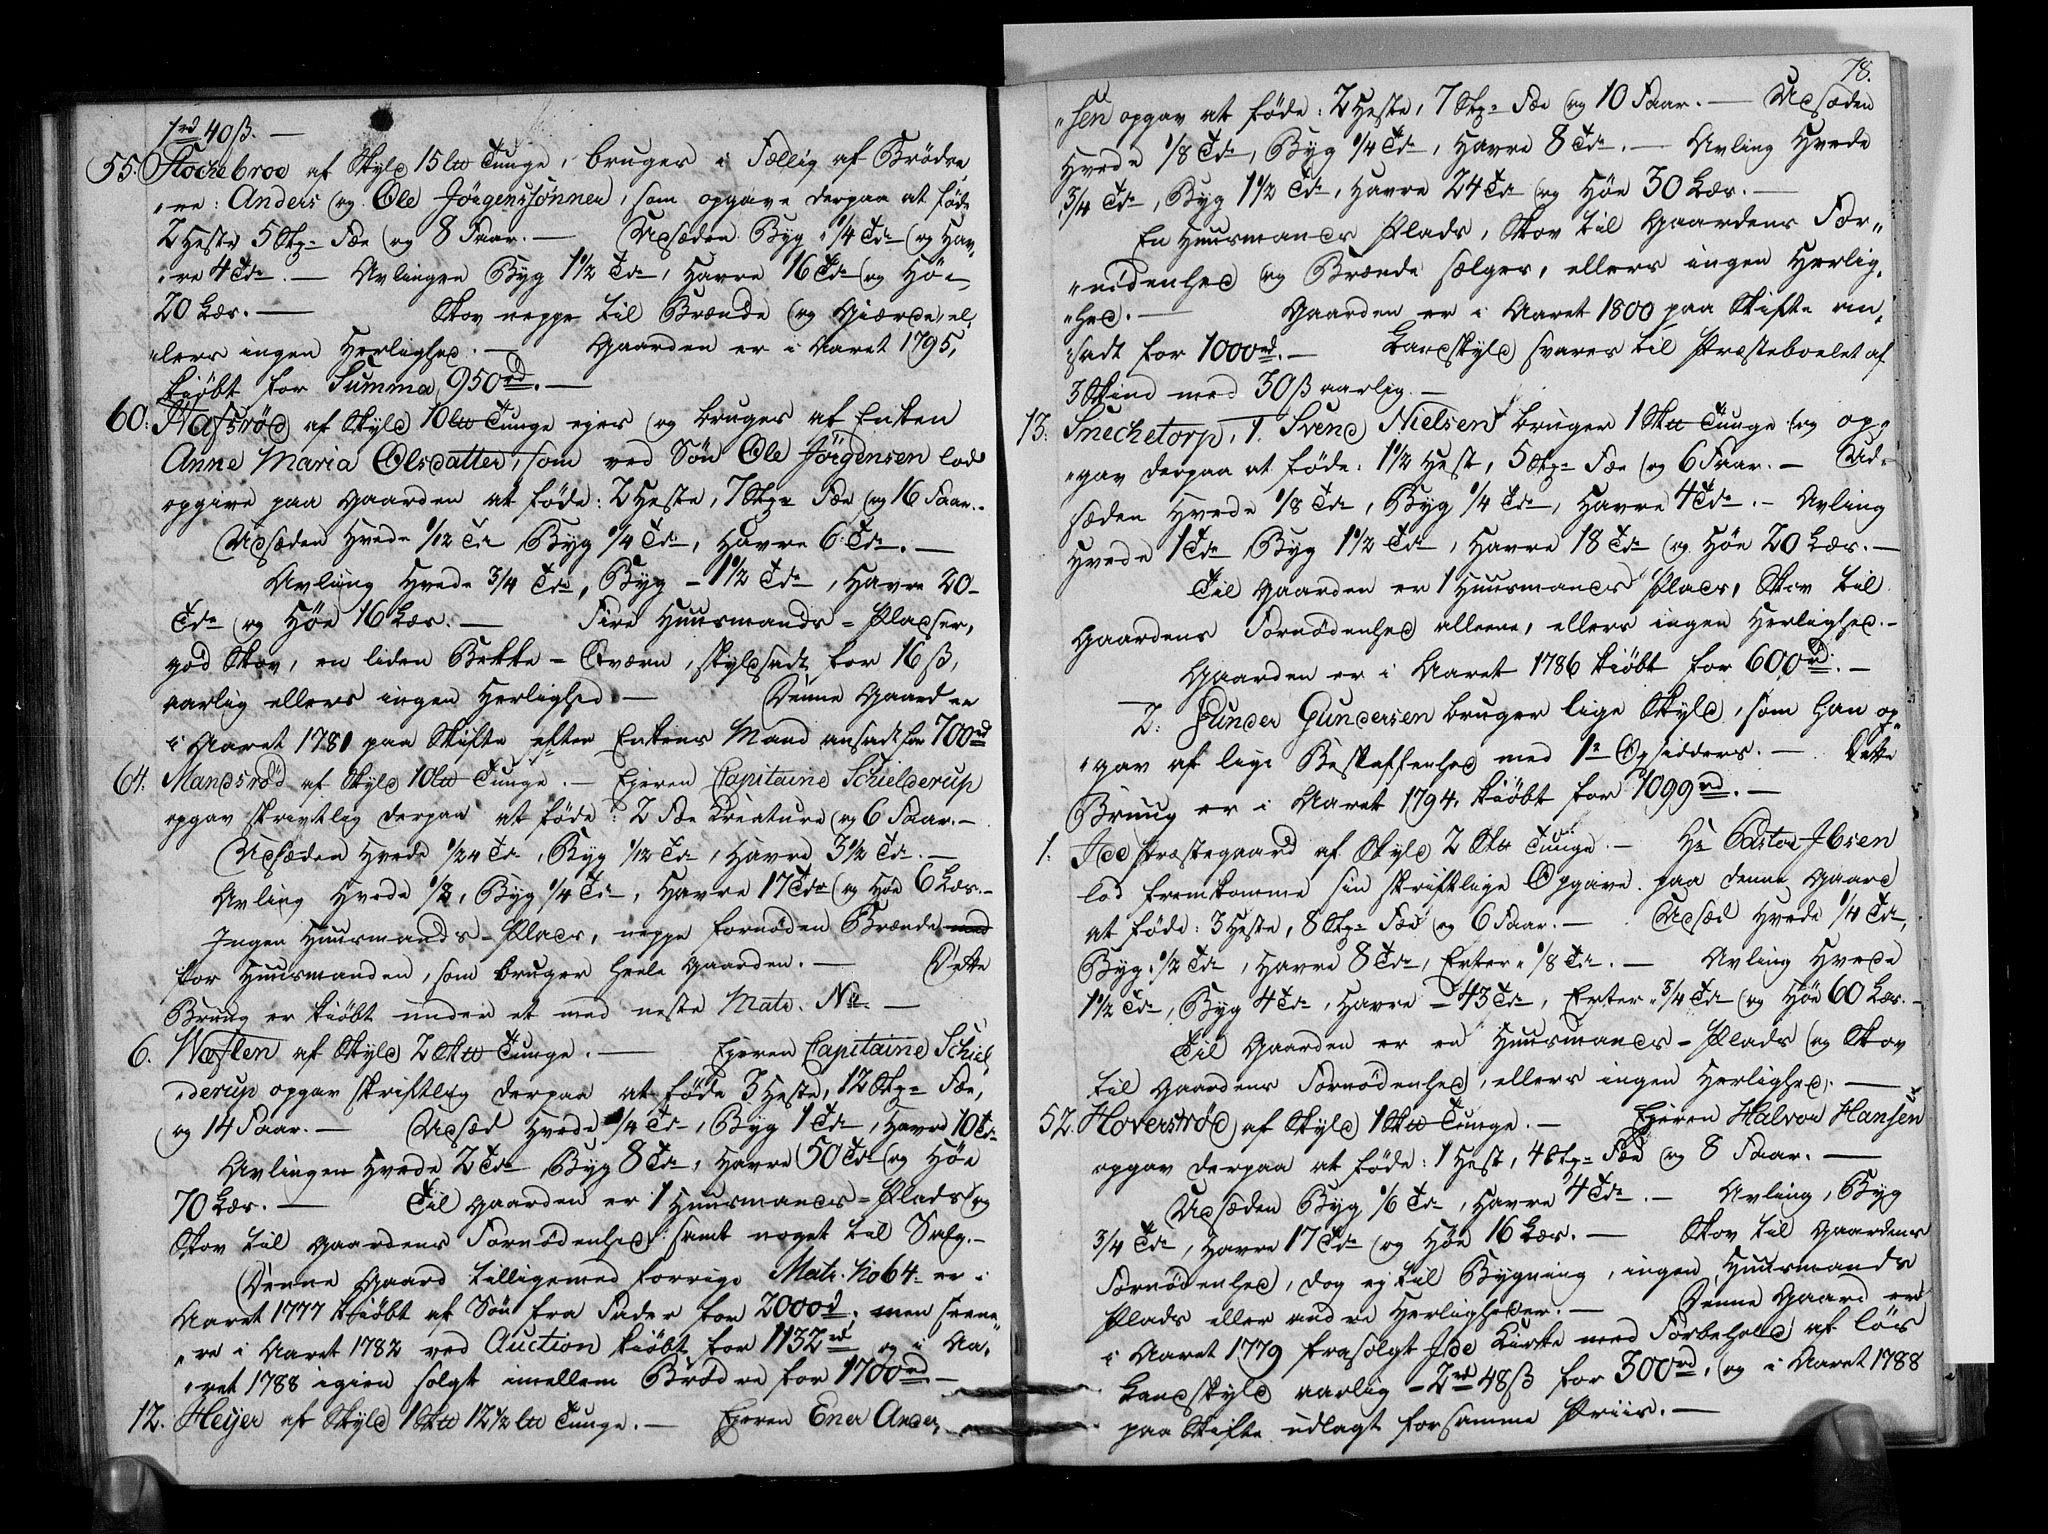 1 rd 40 ß. —
55. Stochebroe af Skyld 15 lb Tunge, bruges i Fællig af Brödre„
„ne: Anders og Ole Jörgenssönner, som opgave derpaa at föde
2 Heste 5 Stk= Fæe og 8 Faar. — Udsæden Byg 1/4 Td og Hav„
„re 4 Tdr. — Avlingen Byg 1 1/2 Td, Havre 16 Td og Höe
20 Læs. — Skov neppe til Brænde og Gierde, el„
„lers ingen Herlighed. — Gaarden er i Aaret 1795,
kiöbt for Summa 950 rd. —
60. Hafsröd af Skyld 10 lb Tunge ejes og bruges af Enken
Anne Maria Olsdatter, som ved Sön Ole Jörgensen lod
opgive paa Gaarden at föde: 2 Heste, 7 Stk= Fæe og 16 Faar. -
Udsæden Hvede 1/12 Td Byg 1/4 Td, Havre 6 Tdr. —
Avling Hvede 3/4 Td, Byg - 1 1/2 Td, Havre 20 -
Tdr og Höe 16 Læs. — Fire Huusmands - Pladser,
god Skov, en liden Bekke - Qværn, skyldsadt for 16 ß,
aarlig ellers ingen Herlighed — Denne Gaard er
i Aaret 1781 paa Skifte efter Enkens Mand ansadt for 700 rd
64. Mandsröd af Skyld 10 lb Tunge. — Ejeren Capitaine Schielderup
opgav skrivtlig derpaa at föde: 2 Fæe Kreature og 6 Faar. -
Udsæden Hvede 1/24 Td, Byg 1/12 Td, Havre 3 1/2 Td. —
Avling Hvede 1/8, Byg 1/4 Td, Havre 17 Tdr og Höe 6 Læs. -
Ingen Huusmands - Plads, neppe fornöden Brænde
for Huusmanden, som bruger heele Gaarden. — Dette
Brug er kiöbt under et med neste Matr. No. —
6. Wæflen af Skyld 2 Skb Tunge. — Ejeren Capitaine Schiel
„derup opgav skriftlig derpaa at föde 3 Heste, 12 Stk= Fæe,
og 14 Faar. — Udsæd Hvede 1/4 Td, Byg 1 Td, Havre 10 Td
Avlingen Hvede 2 Td Byg 8 Td, Havre 50 Td og Höe
70 Læs. — Til Gaarden er 1 Huusmands - Plads og
Skov til Gaardens Fornödenhed samt noget til Salg. -
Denne Gaard tilligemed forrige Matr. No 64 er i
Aaret 1777 kiöbt af Sön fra Fader for 2000 rd. men seene„
„re i Aaret 1782 ved Auction kiöbt for 1132 rd og i Aa„
„ret 1788 igien solgt imellem Brödre for 1700 rd. —
12. Heyer af Skyld 1 Skb 12 1/2 lb Tunge. — Ejeren Ener Ander„
78.
„sen opgav at föde: 2 Heste, 7 Stk= Fæe og 10 Faar. — Udsæden
Hvede 1/8 Td, Byg 1/4 Td, Havre 8 Td. — Avling Hvede
3/4 Td, Byg 1 1/2 Td, Havre 24 Td og Höe 30 Læs. —
En Huusmands Plads, Skov til Gaardens For„
„nödenhed og Brænde sælges, ellers ingen Herlig„
„hed. — Gaarden er i Aaret 1800 paa Skifte an„
„sadt for 1000 rd. — Landskyld svares til Præsteboelet af
3 Skind med 30 ß aarlig. —
13. Snechetorp, 1. Svend Nielsen bruger 1 Skb Tunge og op„
„gav derpaa at föde: 1 1/2 Hest, 5 Stk= Fæe og 6 Faar. — Ud„
sæden Hvede 1/8 Td, Byg 1/4 Td, Havre 4 Td. - Avling
Hvede 1 Td Byg 1 1/2 Td, Havre 18 Td og Höe 20 Læs. —
Til Gaarden er 1 Huusmands Plads, Skov til
Gaardens Fornödenhed alleene, ellers ingen Herlighed. -
Gaarden er i Aaret 1786 kiöbt for 600 rd. —
2. Gunder Gundersen bruger lige Skyld, som han op„
„gav af lige Beskaffenhed med 1te Opsidders. — Dette
Brug er i Aaret 1794. kiöbt for 1099 rd. —
1. Idde Præstegaard af Skyld 2 Skb Tunge. — Hr Pastor Ibsen
lod fremkomme sin skriftlige Opgave. paa denne Gaard
at föde: 3 Heste, 8 Stk= Fæe og 6 Faar. — Udsæd Hvede 1/4 Td,
Byg 1/2 Td, Havre 8 Td, Erter 1/8 Td. — Avling Hvede
1 1/2 Td, Byg 4 Td, Havre - 43 Td, Erter 3/4 Td og Höe 60 Læs. -
Til Gaarden er en Huusmands - Plads og Skov
til Gaardens Fornödenhed, ellers ingen Herlighed. —
52. Hoversröd af Skyld 1 Skb Tunge. — Ejeren Halvor Hansen
opgav derpaa at föde: 1 Hest, 4 Stk= Fæe og 8 Faar. —
Udsæden Byg 1/6 Td, Havre 4 Td. - Avling, Byg
3/4 Td, Havre 17 Td og Höe 16 Læs. — Skov til Gaardens
Fornödenhed, dog ej til Bygning, ingen Huusmands
Plads eller andre Herligheder. — Denne Gaard er
i Aaret 1779 frasolgt Idde Kirke med Forbehold af löis
Landskyld aarlig - 2 rd 48 ß for 300 rd, og i Aaret 1788
paa Skifte udlagt for samme Priis. —